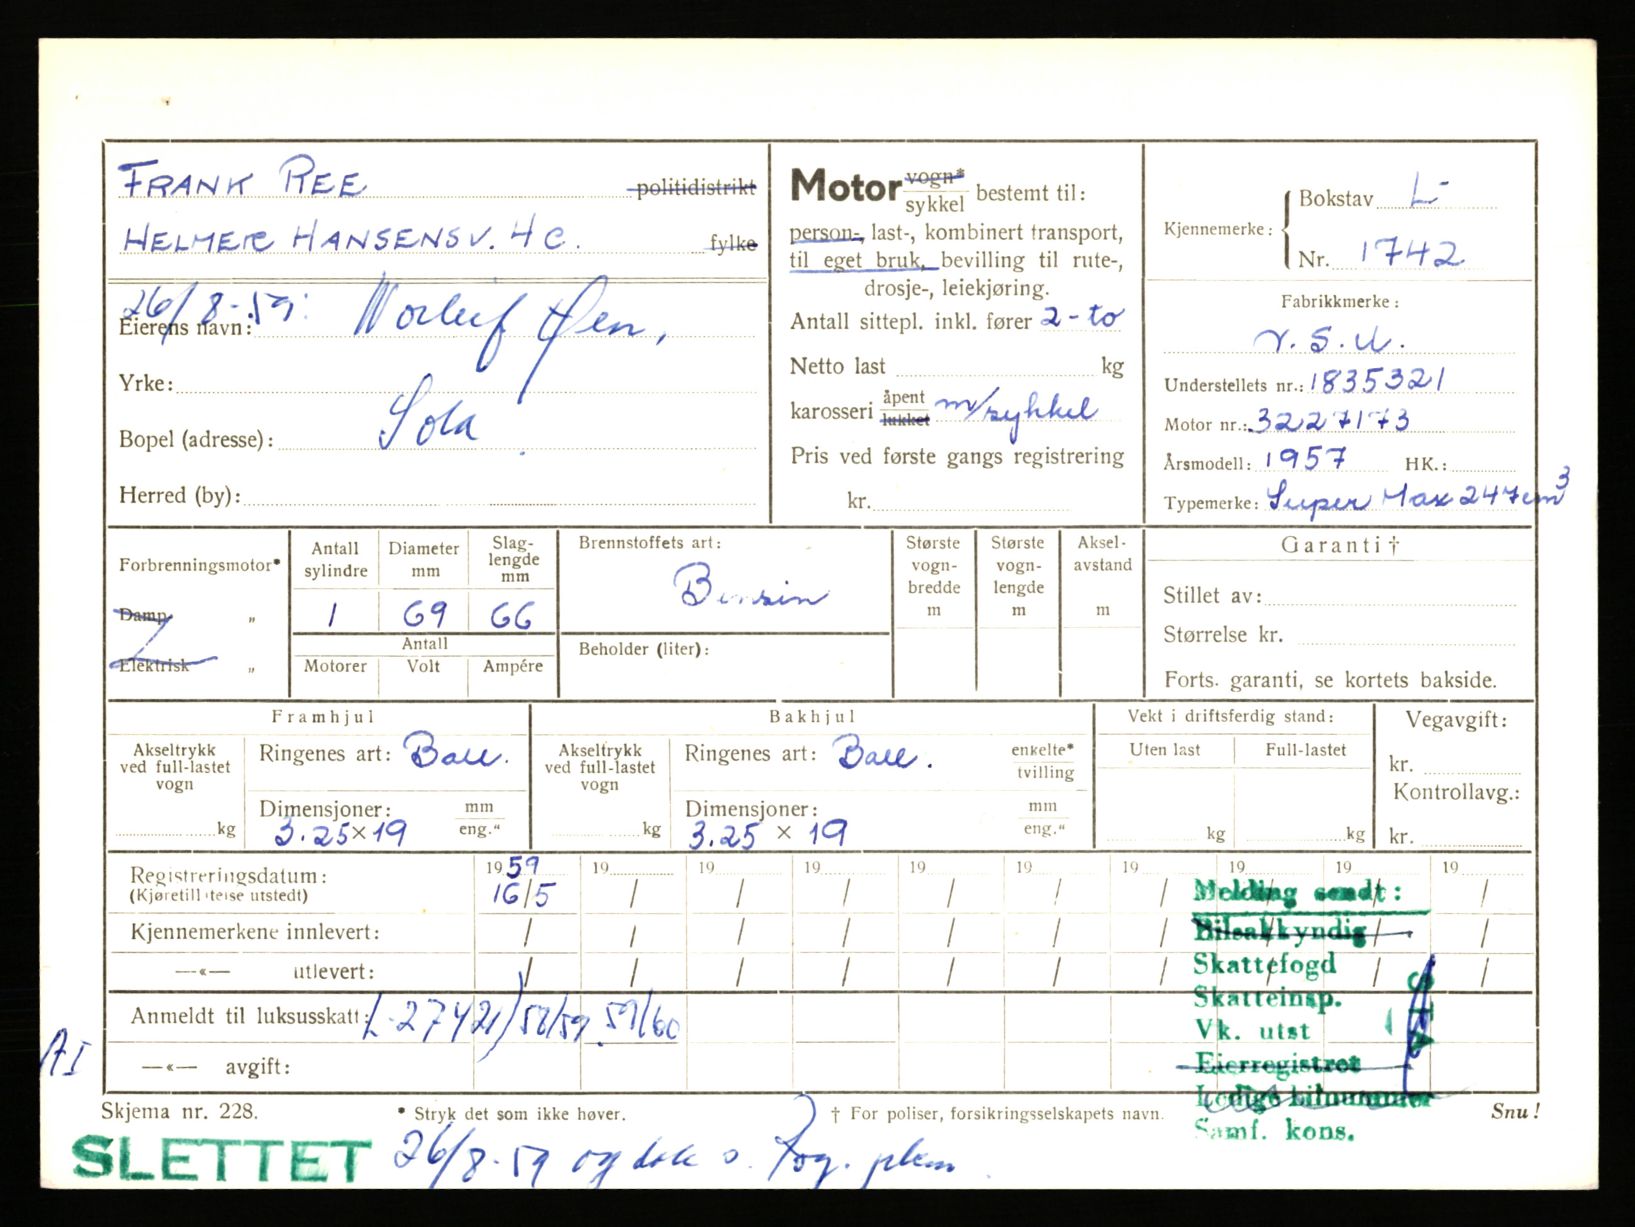 FRANK REE politidistrikt
HELMER HANSENSV. 4 C. fylke
26/8-59:
Eierens navn: Øen,
Yrke:
Bopel (adresse): Sola
Herred (by):
Motor vogn* sykkel bestemt til:
person-, last-, kombinert transport,
til eget bruk, bevilling til rute-,
drosje-, leiekjøring.
Antall sittepl. inkl. fører 2-to
Netto last kg
karosseri åpent lukket m/sykkel
Pris ved første gangs registrering
kr.
Kjennemerke: Bokstav L-
Nr. 1742
Fabrikkmerke:
N.S.U.
Understellets nr.: 1835321
Motor nr.: 3227173
Årsmodell: 1957 HK.:
Typemerke: Super Max 247cm3
Forbrenningsmotor*
Damp „
Elektrisk „
Antall sylindre
Diameter mm
Slag-lengde mm
1 69 66
Antall
Motorer Volt Ampére
Brennstoffets art:
Bensin
Beholder (liter):
Største vogn-bredde m
Største vogn-lengde m
Aksel-avstand m
Garanti †
Stillet av:
Størrelse kr.
Forts. garanti, se kortets bakside.
Framhjul
Akseltrykk ved full-lastet vogn
kg
Ringenes art: Ball.
Dimensjoner: mm eng.“
3.25 × 19
Bakhjul
Akseltrykk ved full-lastet vogn
kg
Ringenes art: Ball.
enkelte* tvilling
Dimensjoner: mm eng.“
3.25 × 19
Vekt i driftsferdig stand:
Uten last Full-lastet
kg kg
Vegavgift:
kr.
Kontrollavg.:
kr.
1959 19 19 19 19 19 19 19 19 19
Registreringsdatum: 16/5 / / / / / / / / /
(Kjøretillatelse utstedt)
Kjennemerkene innlevert: / / / / / / / / / /
—«— utlevert: / / / / / / / / / /
Anmeldt til luksusskatt: L-27421) 58/59 59/60
—«— avgift:
AI
Melding sendt:
Bilsakkyndig
Skattefogd
Skatteinsp.
Vk. utst
Eierregistret
Ledige bilnummer
Samf. kons.
Skjema nr. 228.
* Stryk det som ikke høver.
† For poliser, forsikringsselskapets navn.
Snu!
SLETTET 26/8-59 og